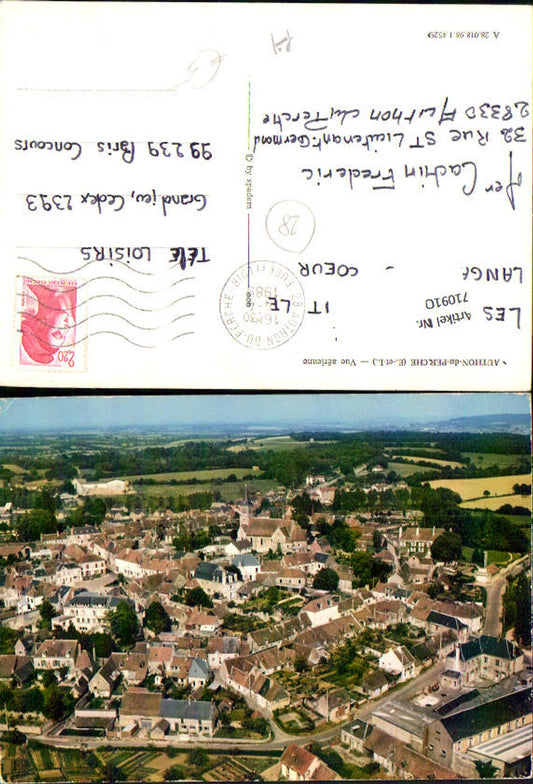 • AUTHON-du-PERCHE (E.-et-L.) — Vue aérienne
LES
Artikel Nr.
710910
IT LE
LANGA
- COEUR
28 AUTHON DU PERCHE
16H30
EURE ET LOIR
REPUBLIQUE FRANCAISE
2,20
28
TÉLÉ LOISIRS
Grand jeu, Cedex 2393
99 239 Paris Concours
Mer Cachin Frederic
32 Rue ST Lieutenant Germond
28330 Authon du Perche
© by spadem
A 28.018.98.1.4529